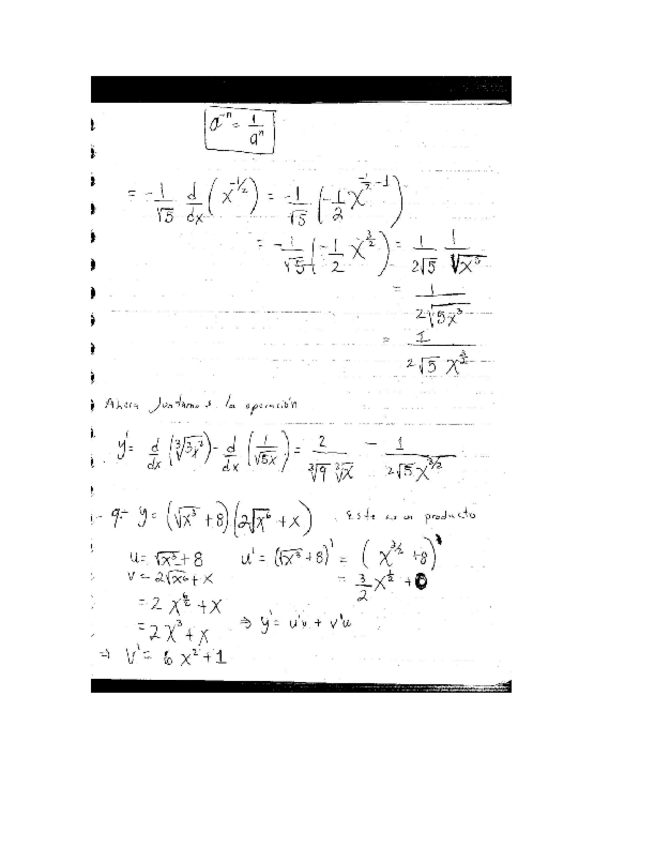 a^{-n} = 1/a^n
= -1/√5 d/dx (x^{-1/2}) = -1/√5 (-1/2 x^{-1/2 - 1})
= -1/√5 (-1/2 x^{3/2}) = 1/2√5 1/√x³
= 1/2√5x³
= 1/2√5 x^{3/2}
Ahora Juntamos la operación
y' = d/dx (∛3x²) - d/dx (1/√5x) = 2/∛9 ∛x - 1/2√5 x^{3/2}
9.- y = (√x³ + 8)(2√x⁶ + x) Este es un producto
u = √x³ + 8 u' = (√x³ + 8)' = (x^{3/2} + 8)'
v = 2√x⁶ + x = 3/2 x^{1/2} + 0
= 2 x^{6/2} + x
= 2x³ + x ⇒ y' = u'v + v'u
⇒ v' = 6x² + 1